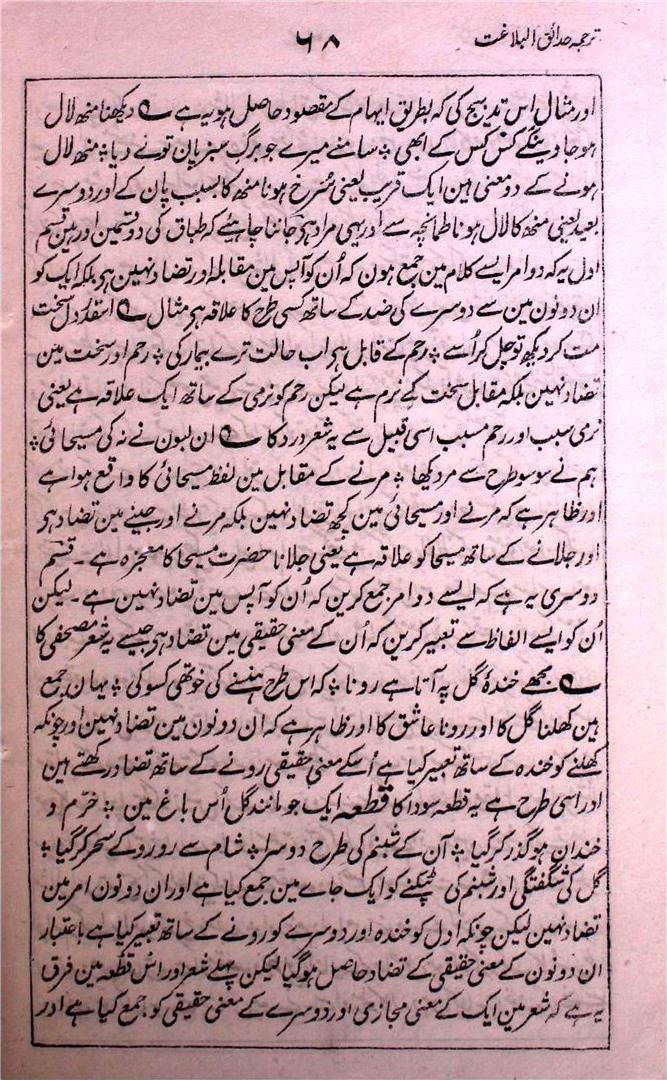 ترجمہ حدائق البلاغت
۶۸
اور مثال اس تدبیج کی کہ بطریق ایہام کے مقصود حاصل ہو یہ ہے ؎ دیکھنا منھ لال
ہو جاوینگے کس کس کے ابھی ؞ سامنے میرے جو برگ سبز پان تونے دیا ؞ منھ لال
ہونے کے دو معنی ہین ایک قریب یعنی سُرخ ہونا منھ کا بسبب پان کے اور دوسرے
بعید یعنی منھ کا لال ہونا طمانچہ سے اور یہی مراد ہی جاننا چاہئے کہ طباق کی دو قسمین اور ہین قسم
اول یہ کہ دو امر ایسے کلام مین جمع ہون کہ اُن کو آپس مین مقابلہ اور تضاد نہین ہی بلکہ ایک کو
ان دونون مین سے دوسرے کی ضد کے ساتھ کسی طرح کا علاقہ ہی مثال ؎ اسقدر دل سخت
مت کر دیکھ تو چل کر اُسے ؞ رحم کے قابل ہی اب حالت ترے بیمار کی ؞ رحم اور سخت مین
تضاد نہین بلکہ مقابل سخت کے نرم ہے لیکن رحم کو نرمی کے ساتھ ایک علاقہ ہے یعنی
نرمی سبب اور رحم مسبب اسی قبیل سے یہ شعر درد کا ؎ ان لبون نے نہ کی مسیحائی ؞
ہم نے سو سو طرح سے مر دیکھا ؞ مرنے کے مقابل مین لفظ مسیحائی کا واقع ہوا ہے
اور ظاہر ہے کہ مرنے اور مسیحائی مین کچھ تضاد نہین بلکہ مرنے اور جینے مین تضاد ہی
اور جلانے کے ساتھ مسیحا کو علاقہ ہے یعنی جلانا حضرت مسیحا کا معجزہ ہے ۔ قسم
دوسری یہ ہے کہ ایسے دو امر جمع کرین کہ اُن کو آپس مین تضاد نہین ہے ۔ لیکن
اُن کو ایسے الفاظ سے تعبیر کرین کہ اُن کے معنی حقیقی مین تضاد ہی جیسے یہ شعر مصحفی کا
؎ مجھے خندۂ گل پہ آتا ہے رونا ؞ کہ اس طرح ہنسنے کی خو تھی کسو کی ؞ یہان جمع
ہین کھلنا گل کا اور رونا عاشق کا اور ظاہر ہے کہ ان دونون مین تضاد نہین اور چونکہ
کھلنے کو خندہ کے ساتھ تعبیر کیا ہے اُسکے معنی حقیقی رونے کے ساتھ تضاد رکھتے ہین
اور اسی طرح ہے یہ قطعہ سودا کا قطعہ ایک جو مانند گل اُس باغ مین ؞ خرّم و
خندان ہو گذر کر گیا ؞ آن کے شبنم کی طرح دوسرا ؞ شام سے رو رو کے سحر کر گیا ؞
گل کی شگفتگی اور شبنم کی ٹپکنے کو ایک جاے مین جمع کیا ہے اور ان دونون امر مین
تضاد نہین لیکن چونکہ اول کو خندہ اور دوسرے کو رونے کے ساتھ تعبیر کیا ہے باعتبار
ان دونون کے معنی حقیقی کے تضاد حاصل ہو گیا لیکن پہلے شعر اور اس قطعہ مین فرق
یہ ہے کہ شعر مین ایک کے معنی مجازی اور دوسرے کے معنی حقیقی کو جمع کیا ہے اور